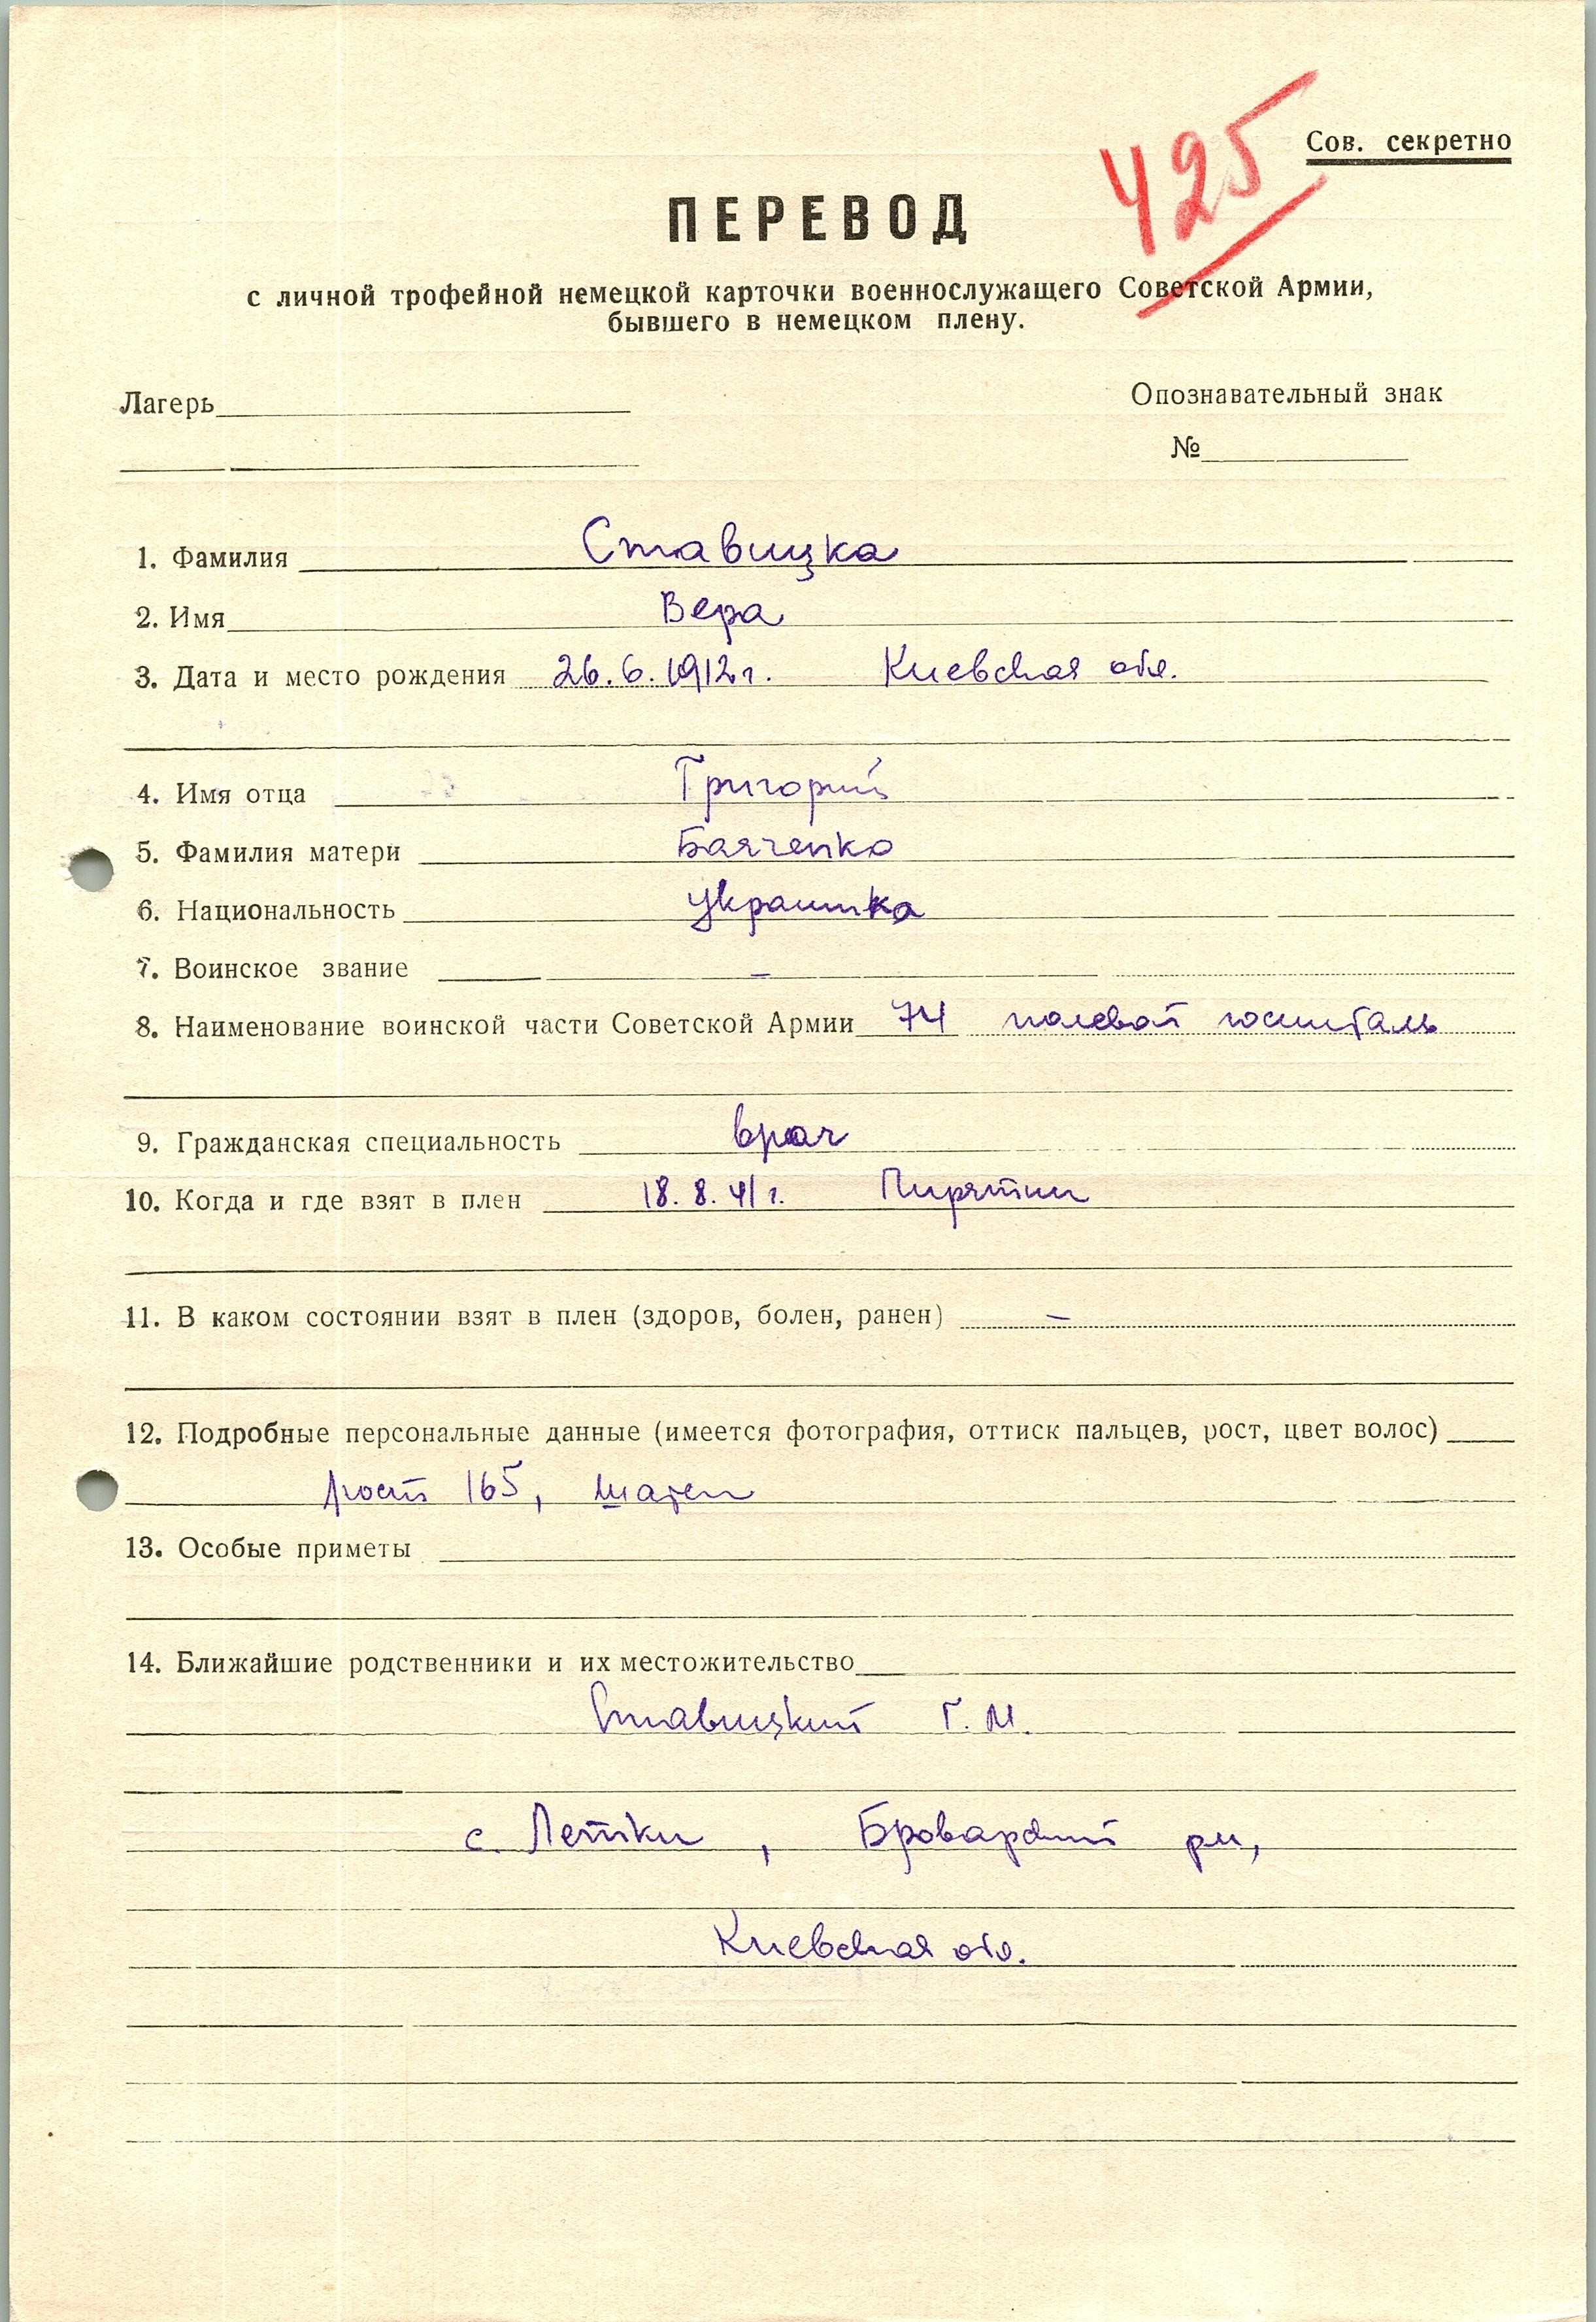 425
Сов. секретно
ПЕРЕВОД
с личной трофейной немецкой карточки военнослужащего Советской Армии,
бывшего в немецком плену.
Лагерь
Опознавательный знак
№
1. Фамилия Ставицка
2. Имя Вера
3. Дата и место рождения 26.6.1912г. Киевская обл.
4. Имя отца Григорий
5. Фамилия матери
6. Национальность украинка
7. Воинское звание –
8. Наименование воинской части Советской Армии 74 полевой госпиталь
9. Гражданская специальность врач
10. Когда и где взят в плен 18.8.41г. Пирятин
11. В каком состоянии взят в плен (здоров, болен, ранен) –
12. Подробные персональные данные (имеется фотография, оттиск пальцев, рост, цвет волос)
рост 165, шатен
13. Особые приметы
14. Ближайшие родственники и их местожительство
Ставицкий Г. М.
с. Летки, Броварский рн,
Киевская обл.